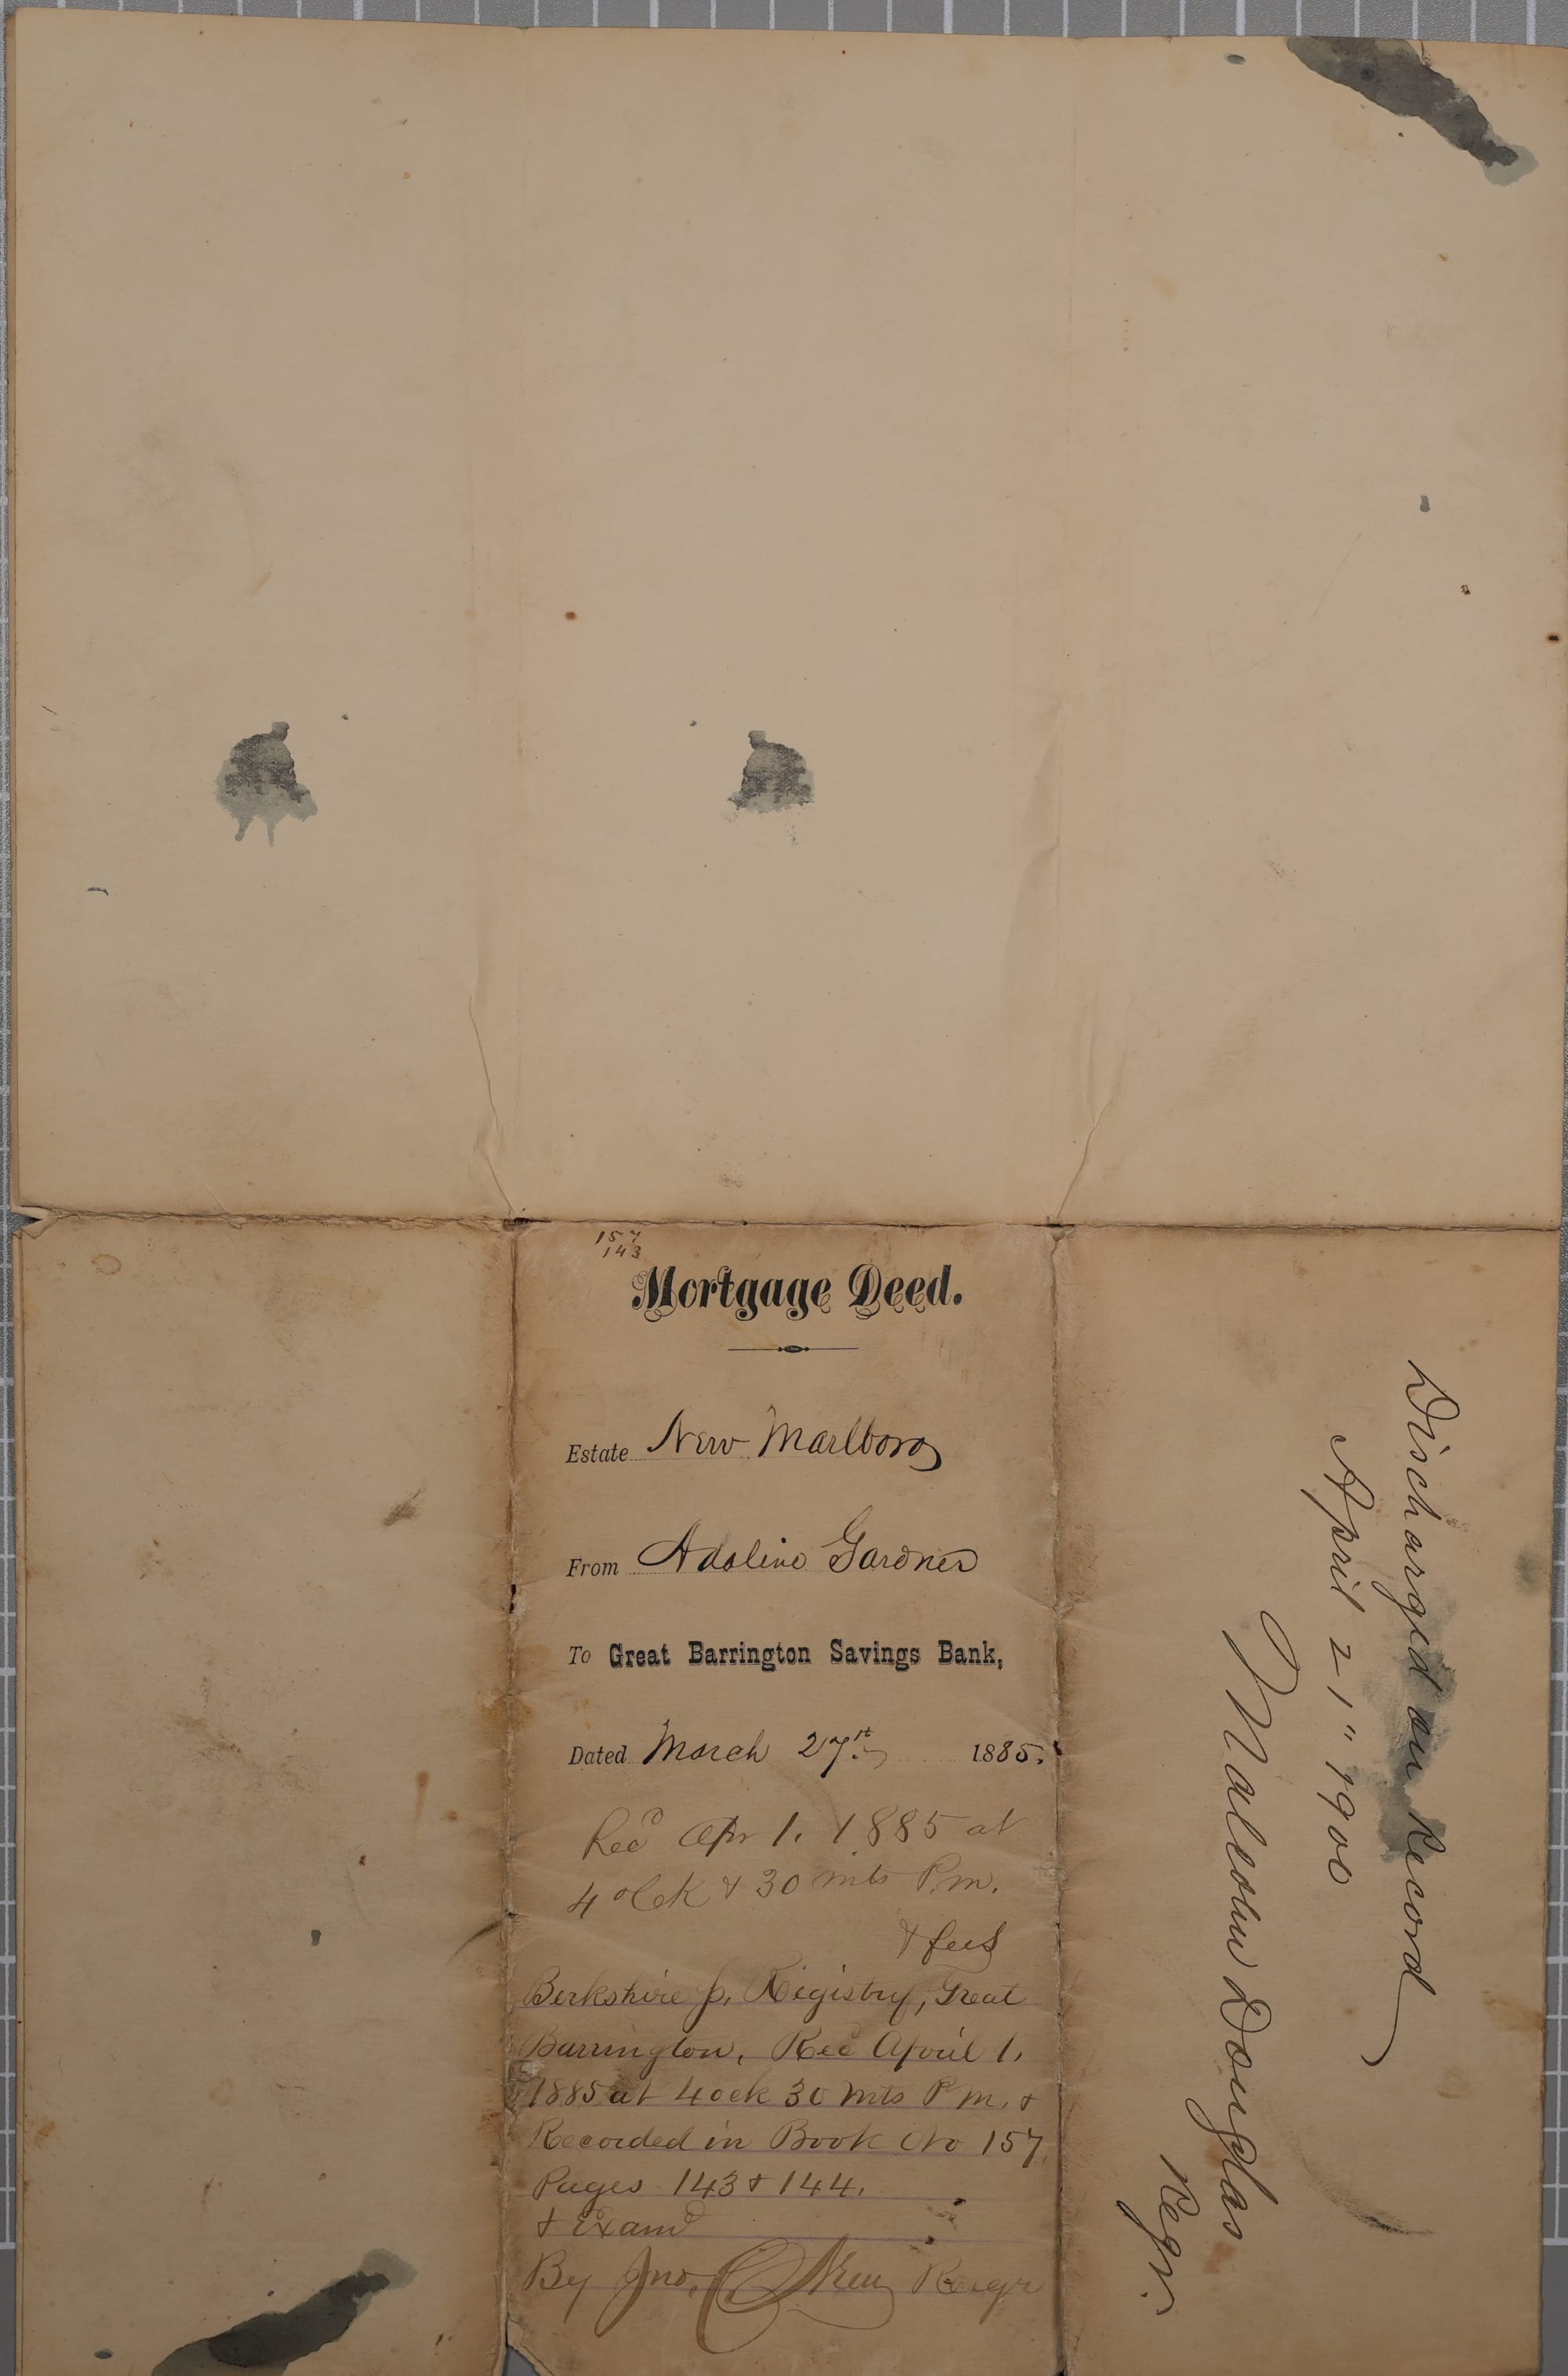 157
143
Mortgage Deed.
Estate New Marlboro
From Adaline Gardner
To Great Barrington Savings Bank,
Dated March 27th 1885.
Recd Apr 1. 1885 at
4 oclk & 30 mts P.m.
& fees
Berkshire So. Registry, Great
Barrington, Recd April 1,
1885 at 4 ock 30 mts P m. &
Recorded in Book No 157,
Pages 143 & 144.
& Examd
By Jno. Regr
Discharged on Record
April 21" 1900
Malcolm Douglas
Regr.